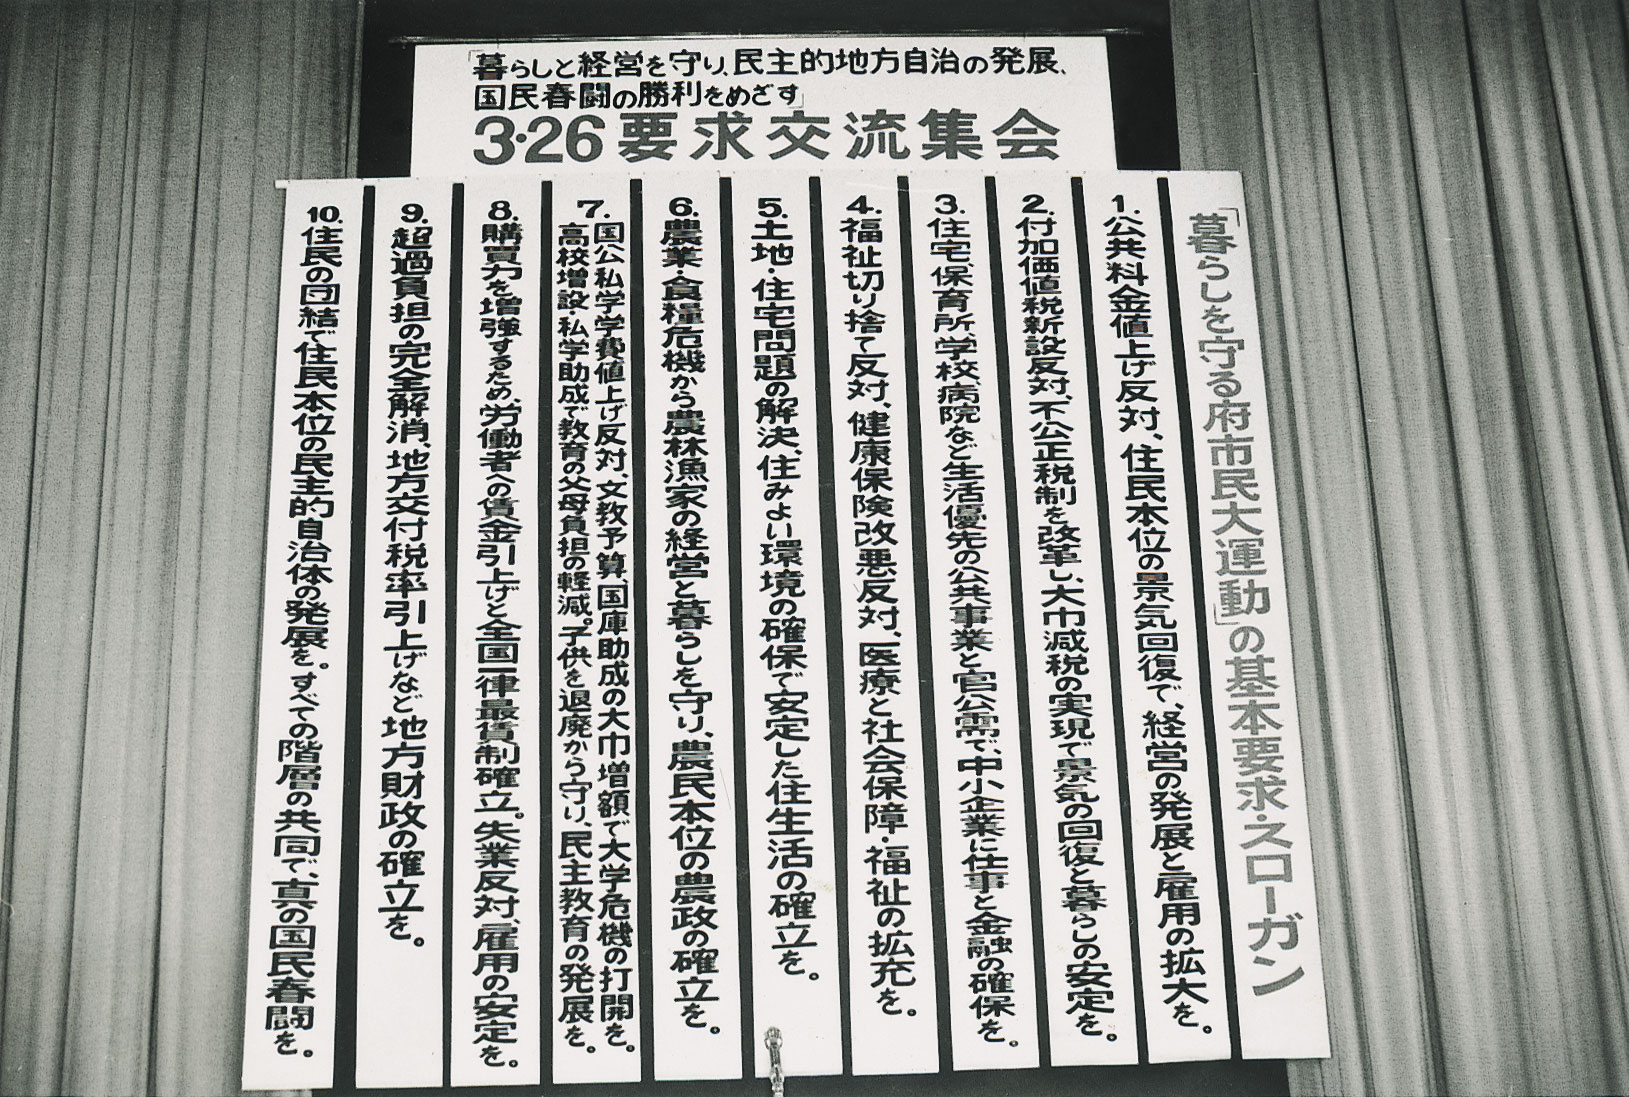 「暮らしと経営を守り、民主的地方自治の発展、
国民春闘の勝利をめざす」
3・26要求交流集会
「暮らしを守る府市民大運動」の基本要求・スローガン
1.公共料金値上げ反対、住民本位の景気回復で、経営の発展と雇用の拡大を。
2.付加価値税新設反対、不公正税制を改革し、大巾減税の実現で景気の回復と暮らしの安定を。
3.住宅、保育所、学校、病院など生活優先の公共事業と官公需で、中小企業に仕事と金融の確保を。
4.福祉切り捨て反対、健康保険改悪反対、医療と社会保障・福祉の拡充を。
5.土地・住宅問題の解決、住みよい環境の確保で安定した住生活の確立を。
6.農業・食糧危機から農林漁家の経営と暮らしを守り、農民本位の農政の確立を。
7.国公私学学費値上げ反対、文教予算、国庫助成の大巾増額で大学危機の打開を。
高校増設・私学助成で教育の父母負担の軽減。子供を退廃から守り、民主教育の発展を。
8.購買力を増強するため、労働者への賃金引上げと全国一律最賃制確立。失業反対、雇用の安定を。
9.超過負担の完全解消、地方交付税率引上げなど地方財政の確立を。
10.住民の団結で住民本位の民主的自治体の発展を。すべての階層の共同で、真の国民春闘を。